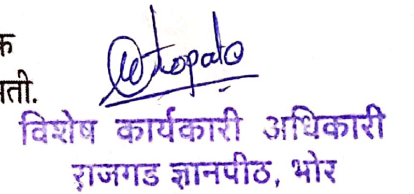 क
ती.
विशेष कार्यकारी अधिकारी
राजगड ज्ञानपीठ, भोर